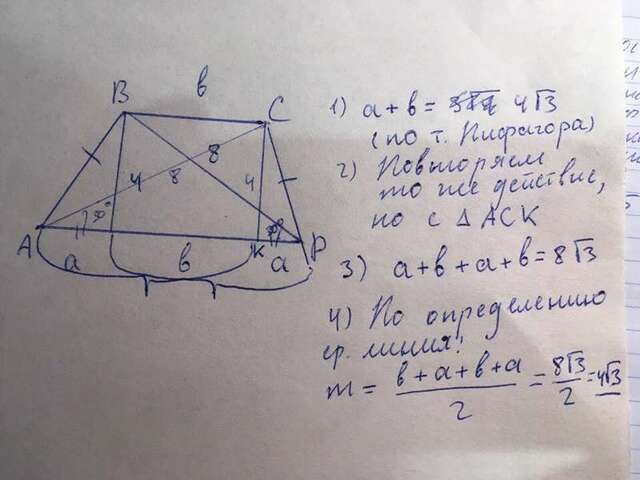 B
в
C
8
4
8
4
70°
70°
A
a
в
K
a
P
1) a+в = 4√3
(по т. Пифагора)
2) Повторяем
то же действие,
но с △ ACK
3) a+в+a+в=8√3
4) По определению
ср. линия:
m = в+a+в+a / 2 = 8√3 / 2 = 4√3